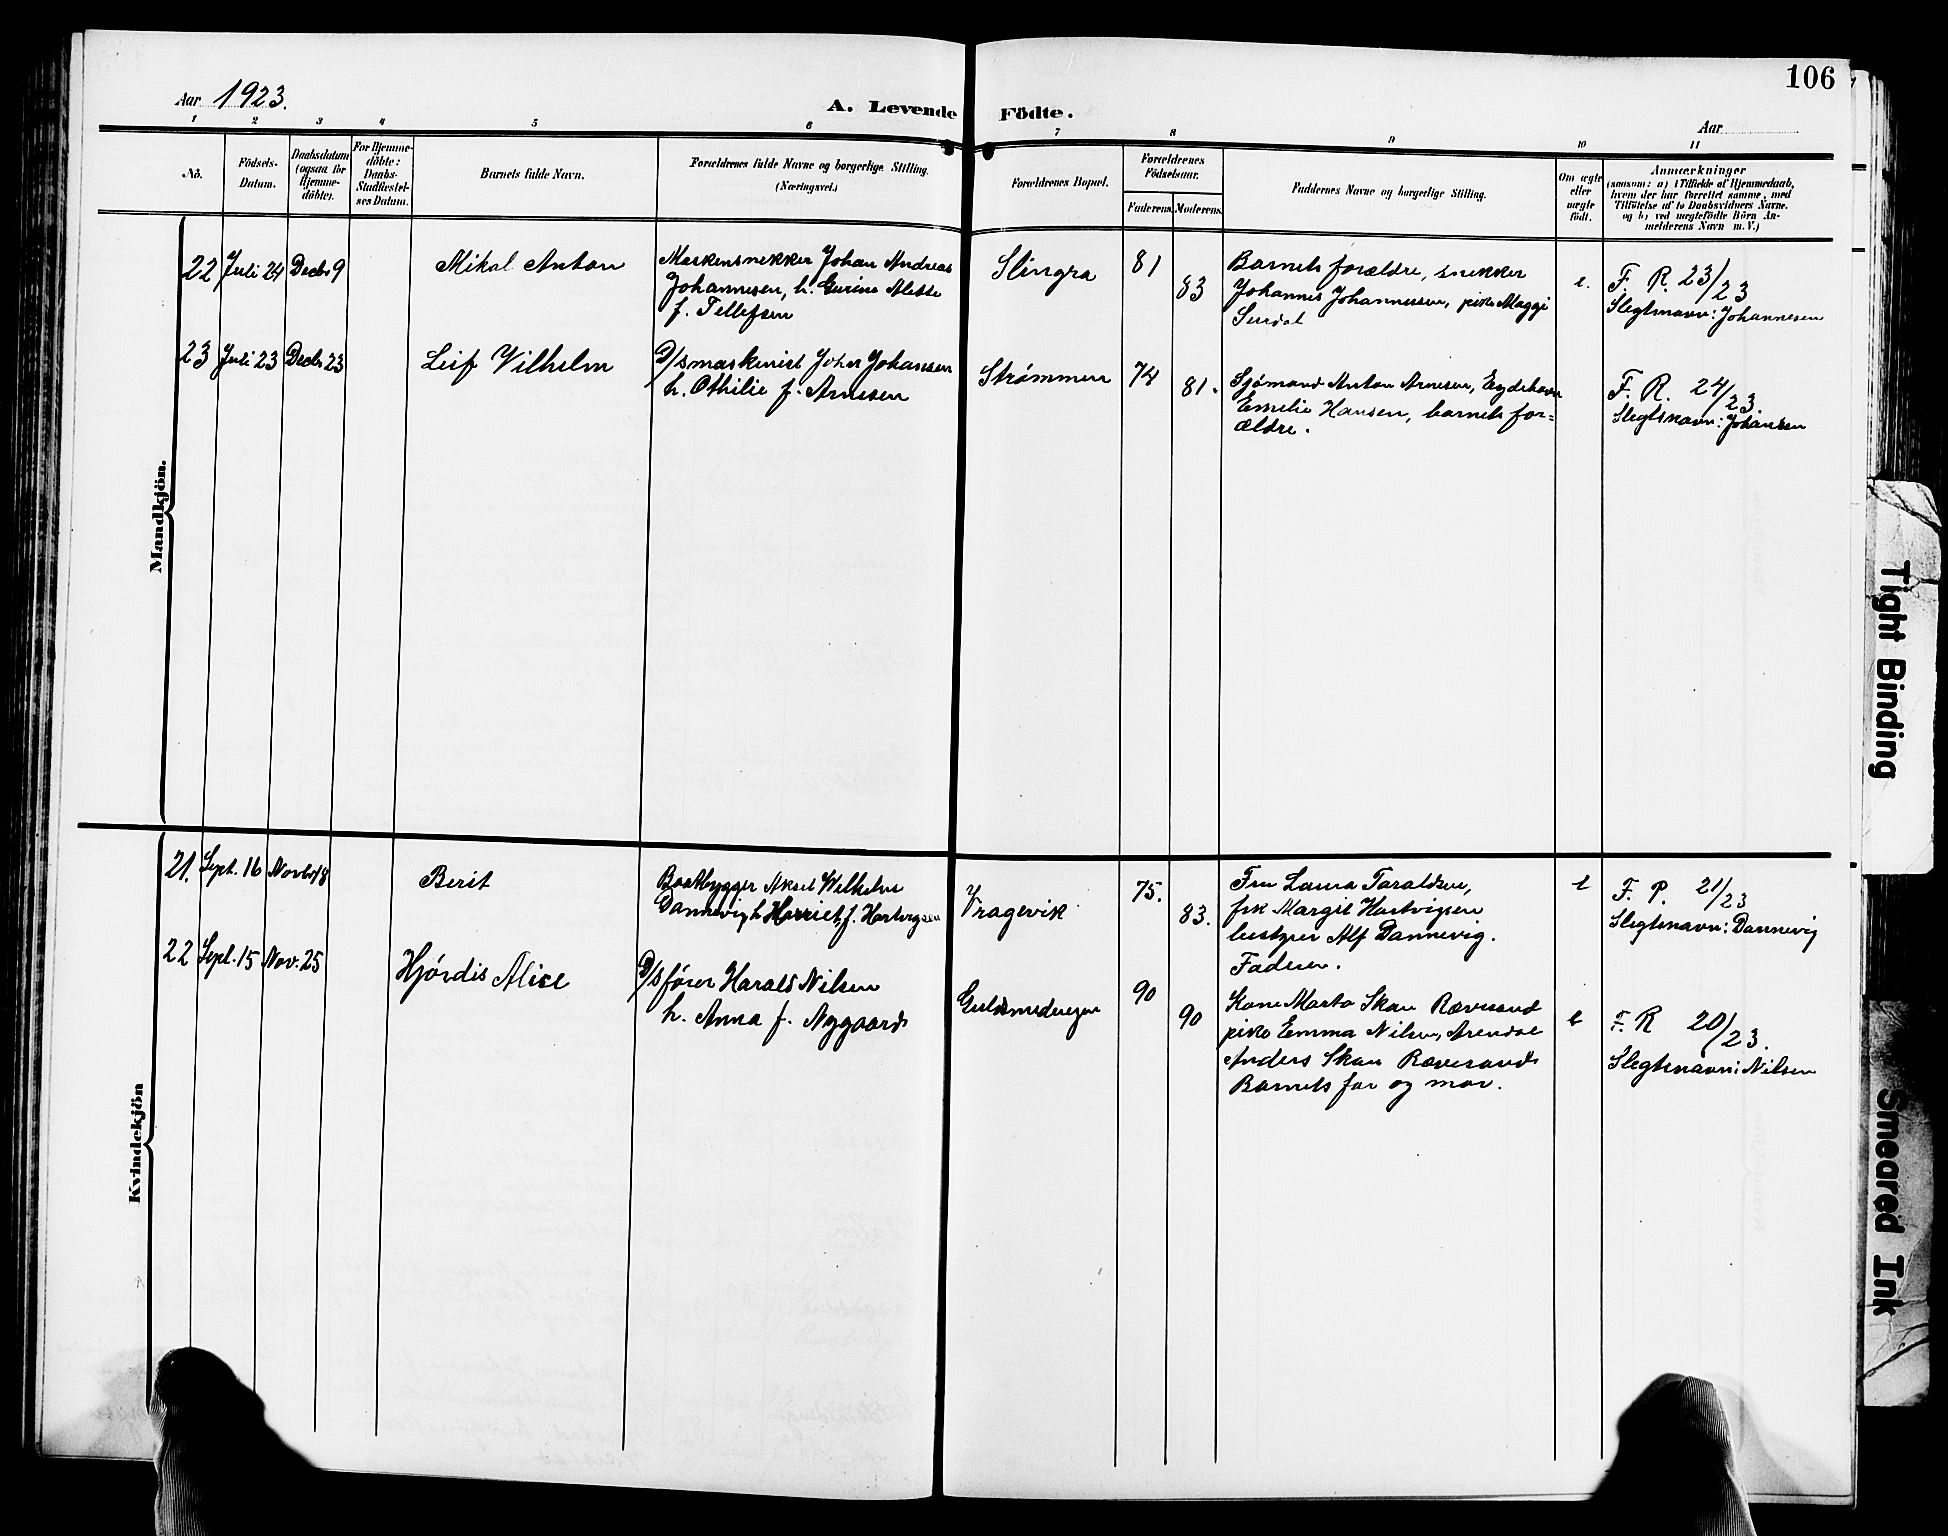 106
Aar 1923.
A. Levende Födte.
Aar
1 2 3 4 5 6 7 8 9 10 11
No.
Födsels-
Datum.
Daabsdatum
(ogsaa for
Hjemme-
döbte).
For Hjemme-
döbte:
Daabs-
Stadfæstel-
ses Datum.
Barnets fulde Navn.
Forældrenes fulde Navne og borgerlige Stilling.
(Næringsvei.)
Forældrenes Bopæl.
Forældrenes
Födselsaar.
Faderens. Moderens.
Faddernes Navne og borgerlige Stilling.
Om ægte
eller
uægte
födt.
Anmærkninger
(saasom: a) i Tilfælde af Hjemmedaab,
hvem der har forrettet samme, med
Tilföielse af to Daabsvidners Navne.
og b) ved uægtefödte Börn An-
melderens Navn m. V.)
Mandkjön.
22 Juli 24 Decbr 9
Mikal Anton
Maskinsnekker Johan Andreas
Johannesen, h. Gurine Alette
f. Tellefsen
Slingra
81
83
Barnets forældre, snekker
Johannes Johannessen, pike Maggi
e.
F. R. 23/23
Slegtnavn: Johannesen
23 Juli 23 Decbr 23
Leif Vilhelm
D/smaskinist John Johansen
h. Othilie f. Arnesen
Strømmen
74
81.
Sjømand Anton Arnesen, Eydehavn
Emelie Hansen, barnets for=
ældre.
F. R. 24/23.
Slegtsnavn: Johansen
Kvindekjön
21. Sept. 16 Novbr 18
Berit
Baatbygger Aksel Wilhelm
Dannevig h. Harriet f. Hartvigsen
Vragevik
75.
83.
Fru Laura Taraldsen,
frk Margit Hartvigsen
bestyrer Alf Dannevig.
Faderen.
e
F. R. 21/23
Slegtsnavn: Dannevig
22 Sept. 15 Nov. 25
Hjørdis Alice
D/s fører Harald Nilsen
h. Anna f. Nygaard
Guldsmedengen
90
90
Kone Marta Skau Rævesand
pike Emma Nilsen, Arendal
Anders Skau Rævesand
Barnets far og mor.
e
F. R 20/23.
Slegtsnavn: Nilsen
Tight Binding
Smeared Ink